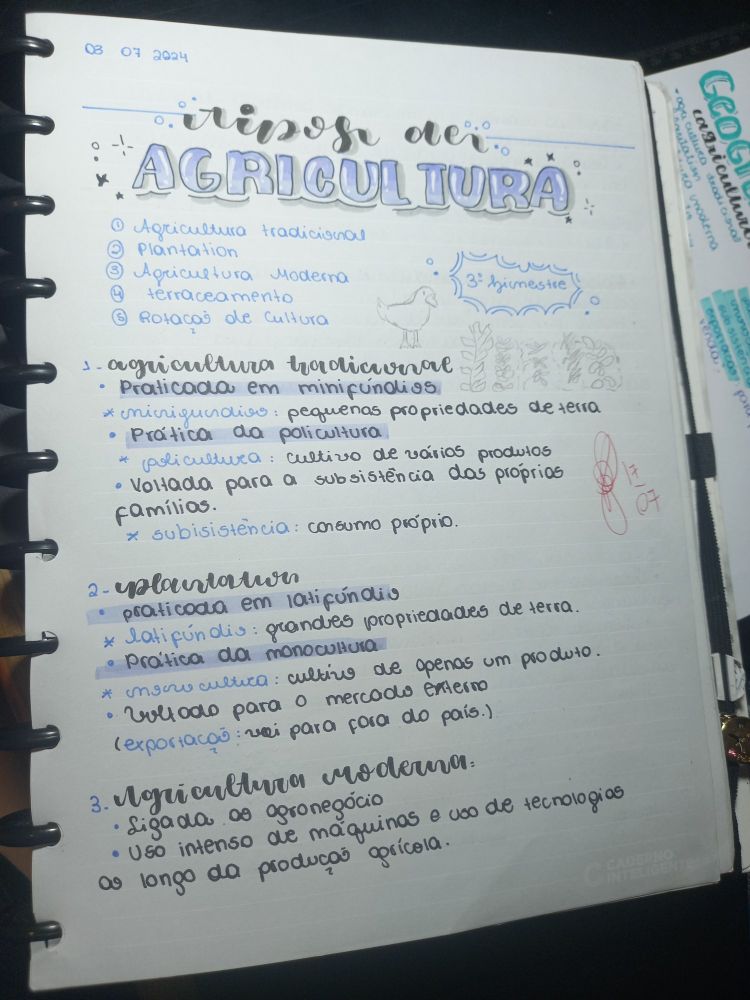 03 07 2024
tipos de
AGRICULTURA
① Agricultura tradicional
② Plantation
③ Agricultura Moderna
④ terraceamento
⑤ Rotação de Cultura
3º bimestre
1 - agricultura tradicional
• Praticada em minifúndios
* minifundios: pequenas propriedades de terra
• Prática da policultura
* policultura: cultivo de vários produtos
• Voltada para a subsistência das próprias
famílias.
* subisistência: consumo próprio.
17
07
2 - plantation
• praticada em latifúndio
* latifúndio: grandes propriedades de terra.
• Prática da monocultura
* monocultura: cultivo de apenas um produto.
• Voltado para o mercado externo
(exportação: vai para fora do país.)
3. Agricultura moderna:
• Ligada ao agronegócio
• Uso intenso de máquinas e uso de tecnologias
ao longo da produção agrícola.
CADERNO
INTELIGENTE